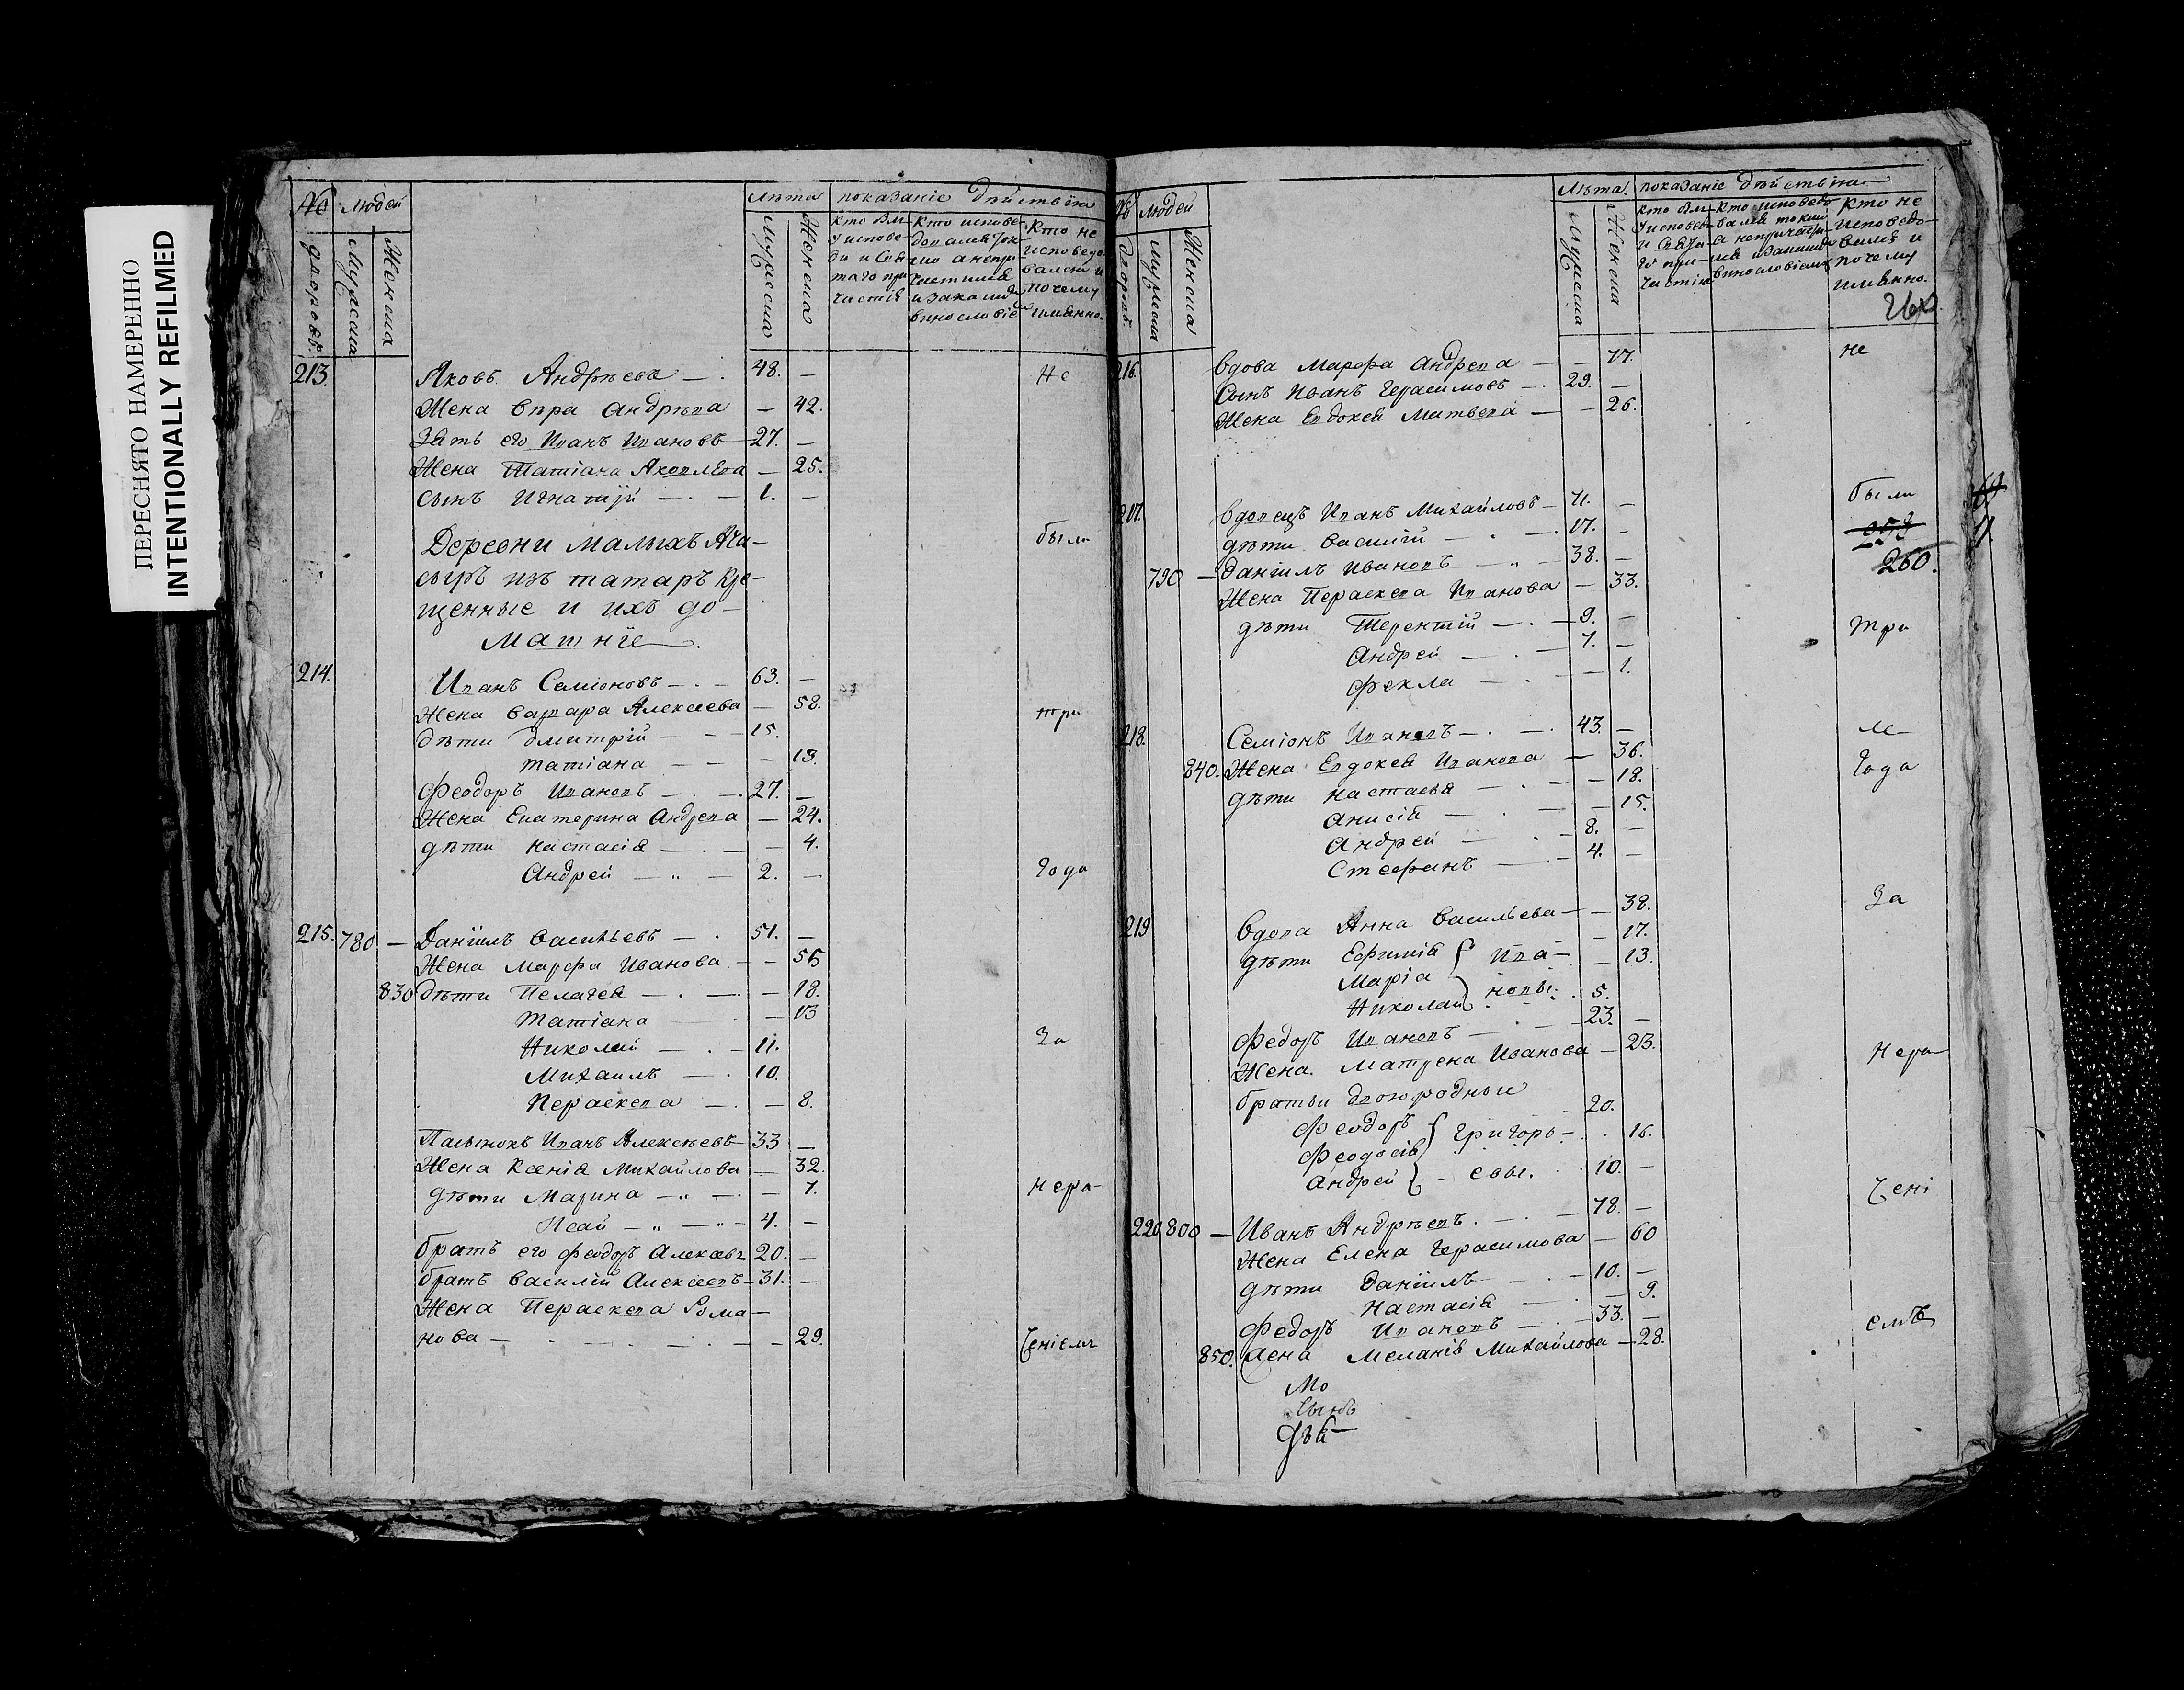 ПЕРЕСНЯТО НАМЕРЕННО
INTENTIONALLY REFILMED
№ людей
дворовъ.
Мужеска
Женска
лѣта
Мужеска
Женска
показаніе дѣйствіа
Кто не исповедовался и почему имянно.
213. Яковъ Андрѣевъ — 48. — Не
Жена Вѣра Андрѣва — 42.
Зять его Иванъ Ивановъ — 27. —
Жена Татіана Яковлева — 25.
сынъ Игнатій — 1. —
Деревни Малыхъ Ача- были
сыръ изъ татаръ кре-
щенные и ихъ до-
машніе
214. Иванъ Семіоновъ — 63. —
Жена Варвара Алексеева — 58. три
дѣти Дмитрій — 15.
татіана — 13.
Феодоръ Ивановъ — 27. —
Жена Екатерина Андрева — 24.
дѣти настасія — 4.
Андрей — 2. — года
215. 780 — Даніилъ Васильевъ — 51. —
Жена Марфа Иванова — 55
830 дѣти Пелагея — 18.
татіана — 13
Николай — 11. за
Михаилъ — 10.
Пераскева — 8.
Пасынокъ Иванъ Алексѣевъ — 33 —
Жена Ксенія Михайлова — 32.
дѣти Марина — 7. нера-
Исай — 4. —
братъ его Феодоръ Алексѣев 20. —
братъ Василій Алексеевъ — 31. —
Жена Пераскева Рома-
нова — 29. ченіемъ
№ людей
дворовъ.
Мужеска
Женска
Лѣта.
Мужеска
Женска
показаніе дѣйствіа
Кто не исповедо-
вался и
почему
имянно.
216. вдова Марфа Андрева — 77. не
Сынъ Иванъ Герасимовъ — 29. —
Жена Евдокея Матвева — 26.
217. вдовецъ Иванъ Михайловъ — 71. — были
дѣти Василій — 17. —
790 — Даніилъ Ивановъ — 38. — 260.
Жена Пераскева Иванова — 33.
дѣти Терентій — 9. — три
Андрей — 7. —
Фекла — 1.
218. Семіонъ Ивановъ — 43. —
840. Жена Евдокея Иванова — 36. года
дѣти настасья — 18.
анисія — 15.
Андрей — 8. —
Стефанъ — 4. —
219 вдова Анна Васильева — 38. За
дѣти Ефимія } Ива- — 17.
Маріа — 13.
Николай } новы. 5.
Федоръ Ивановъ — 23. —
Жена Матрена Иванова — 23. Нера-
братьи двоюродныи
Феодоръ } Григорь- 20.
Феодосія — 16.
Андрей } - евы. 10. —
220 800 — Иванъ Андрѣевъ — 78. — чені
Жена Елена Герасимова — 60
дѣти Даніилъ — 10. —
Настасія — 9.
Федоръ Ивановъ — 33. — емъ
850. Жена Меланія Михайлова — 28.
Мо